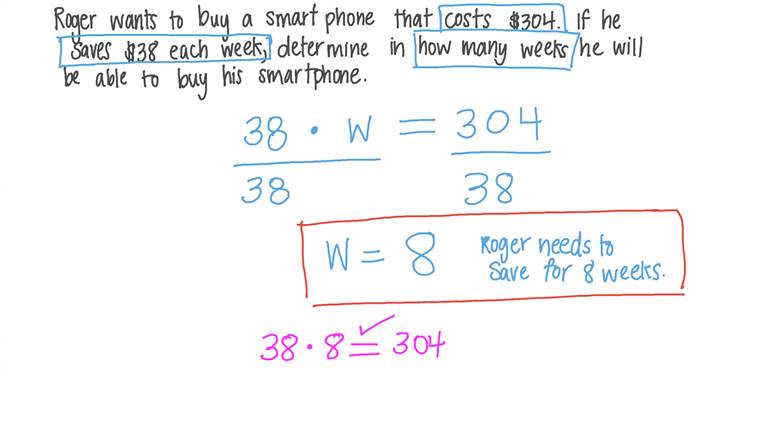 Roger wants to buy a smart phone that costs $304. If he
saves $38 each week, determine in how many weeks he will
be able to buy his smartphone.
38 · W = 304
38 38
W = 8 Roger needs to
save for 8 weeks.
38 · 8 = 304